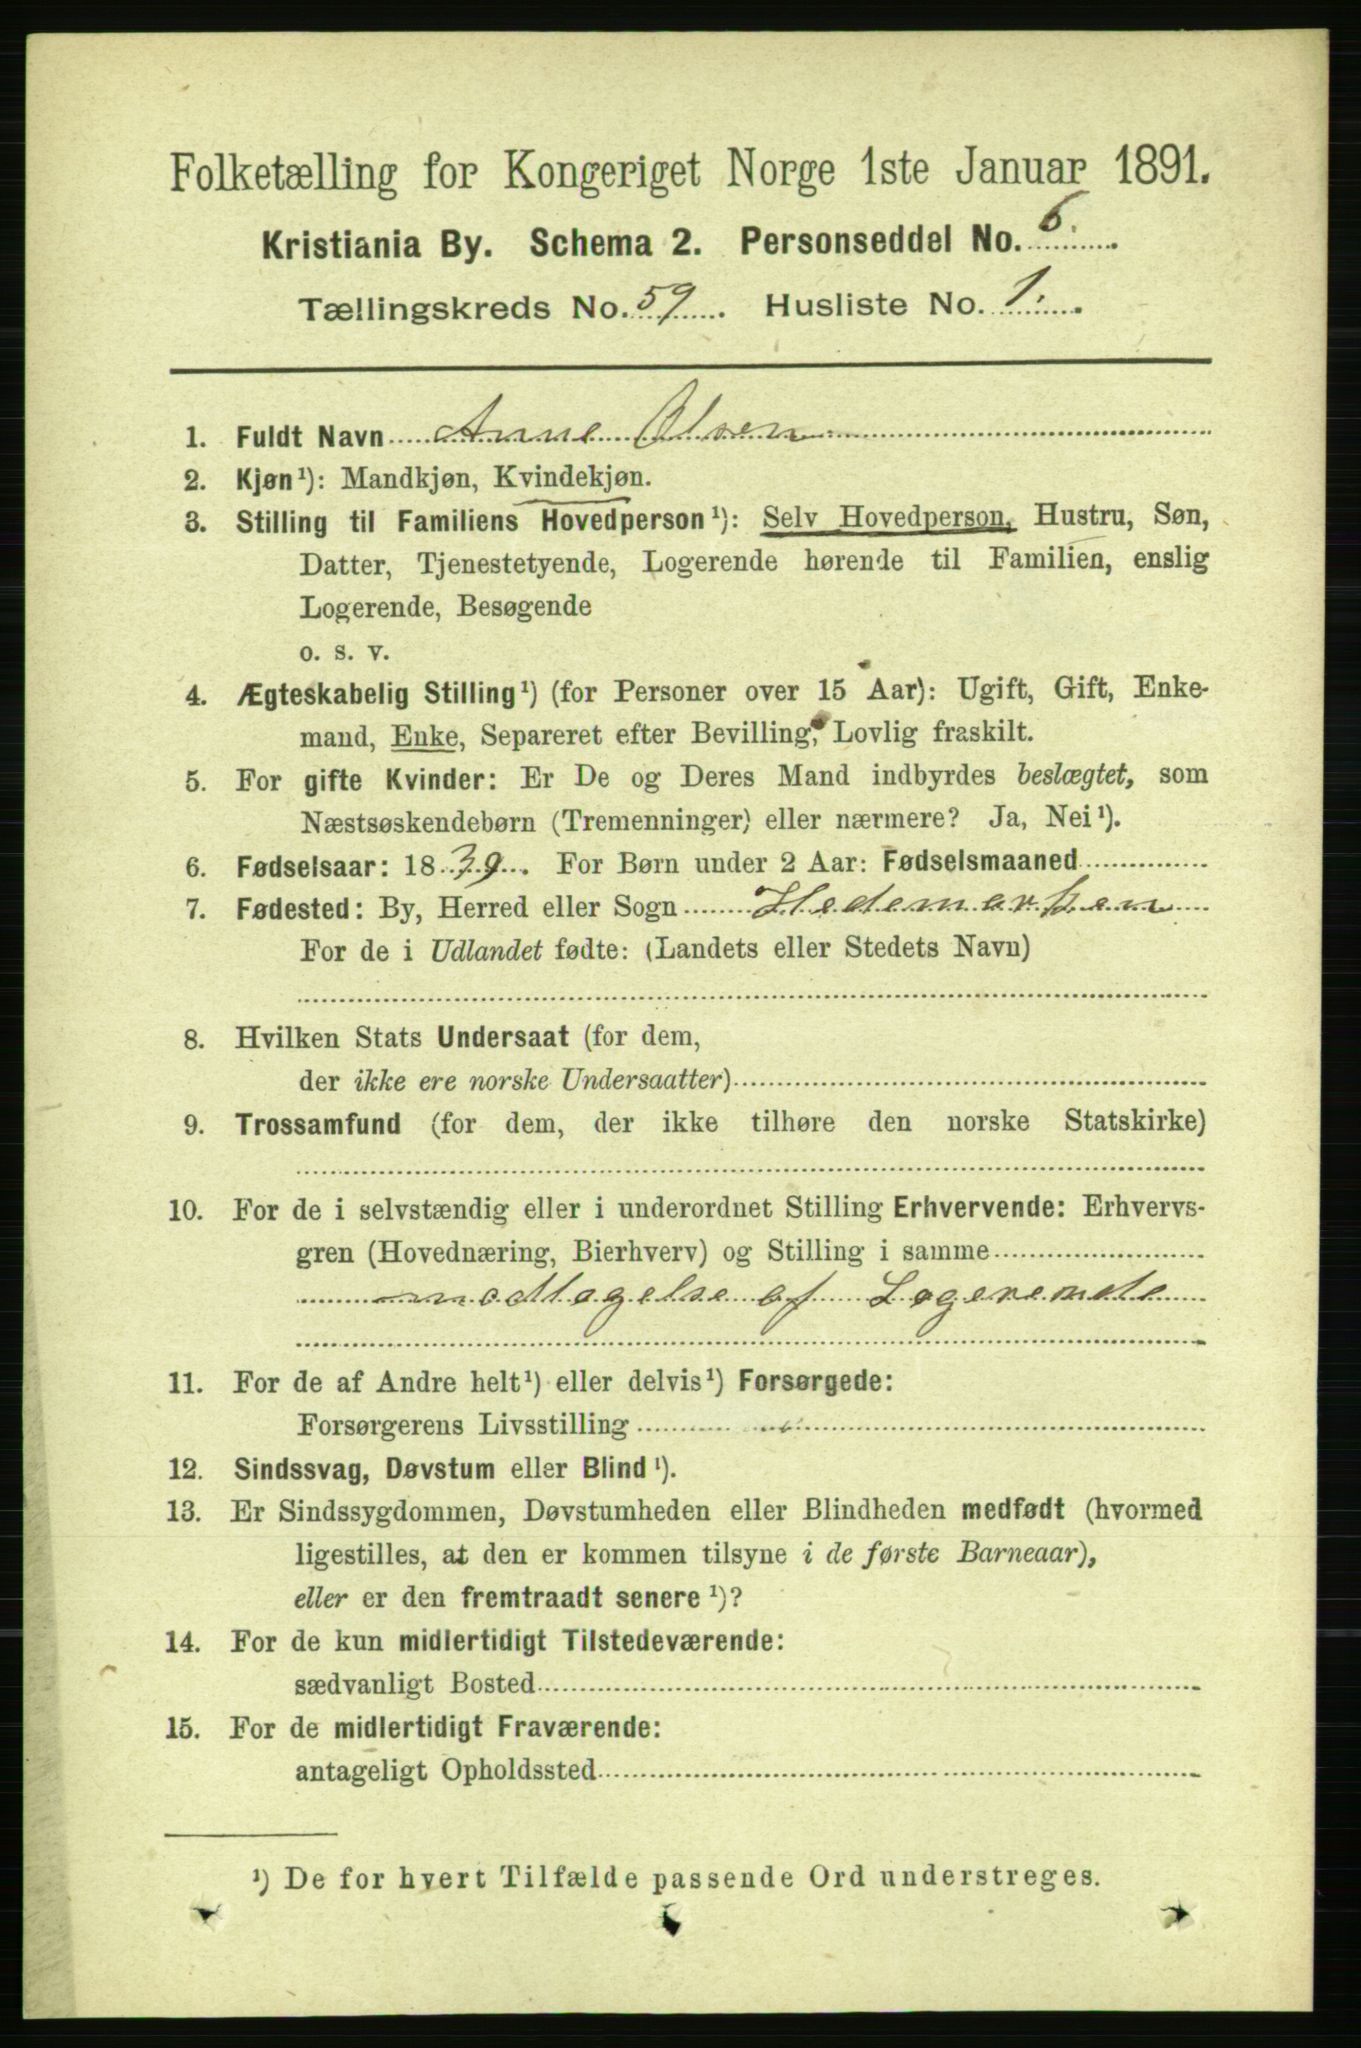 Folketælling for Kongeriget Norge 1ste Januar 1891.
Kristiania By. Schema 2. Personseddel No. 6.
Tællingskreds No. 59. Husliste No. 1.
1. Fuldt Navn Anne Olsen
2. Kjøn¹): Mandkjøn, Kvindekjøn.
3. Stilling til Familiens Hovedperson¹): Selv Hovedperson, Hustru, Søn,
Datter, Tjenestetyende, Logerende hørende til Familien, enslig
Logerende, Besøgende
o. s. v.
4. Ægteskabelig Stilling¹) (for Personer over 15 Aar): Ugift, Gift, Enke-
mand, Enke, Separeret efter Bevilling, Lovlig fraskilt.
5. For gifte Kvinder: Er De og Deres Mand indbyrdes beslægtet, som
Næstsøskendebørn (Tremenninger) eller nærmere? Ja, Nei¹).
6. Fødselsaar: 1839. For Børn under 2 Aar: Fødselsmaaned
7. Fødested: By, Herred eller Sogn Hedemarken
For de i Udlandet fødte: (Landets eller Stedets Navn)
8. Hvilken Stats Undersaat (for dem,
der ikke ere norske Undersaatter)
9. Trossamfund (for dem, der ikke tilhøre den norske Statskirke)
10. For de i selvstændig eller i underordnet Stilling Erhvervende: Erhvervs-
gren (Hovednæring, Bierhverv) og Stilling i samme
modtagelse af Logerende
11. For de af Andre helt¹) eller delvis¹) Forsørgede:
Forsørgerens Livsstilling
12. Sindssvag, Døvstum eller Blind¹).
13. Er Sindssygdommen, Døvstumheden eller Blindheden medfødt (hvormed
ligestilles, at den er kommen tilsyne i de første Barneaar),
eller er den fremtraadt senere¹)?
14. For de kun midlertidigt Tilstedeværende:
sædvanligt Bosted
15. For de midlertidigt Fraværende:
antageligt Opholdssted
¹) De for hvert Tilfælde passende Ord understreges.